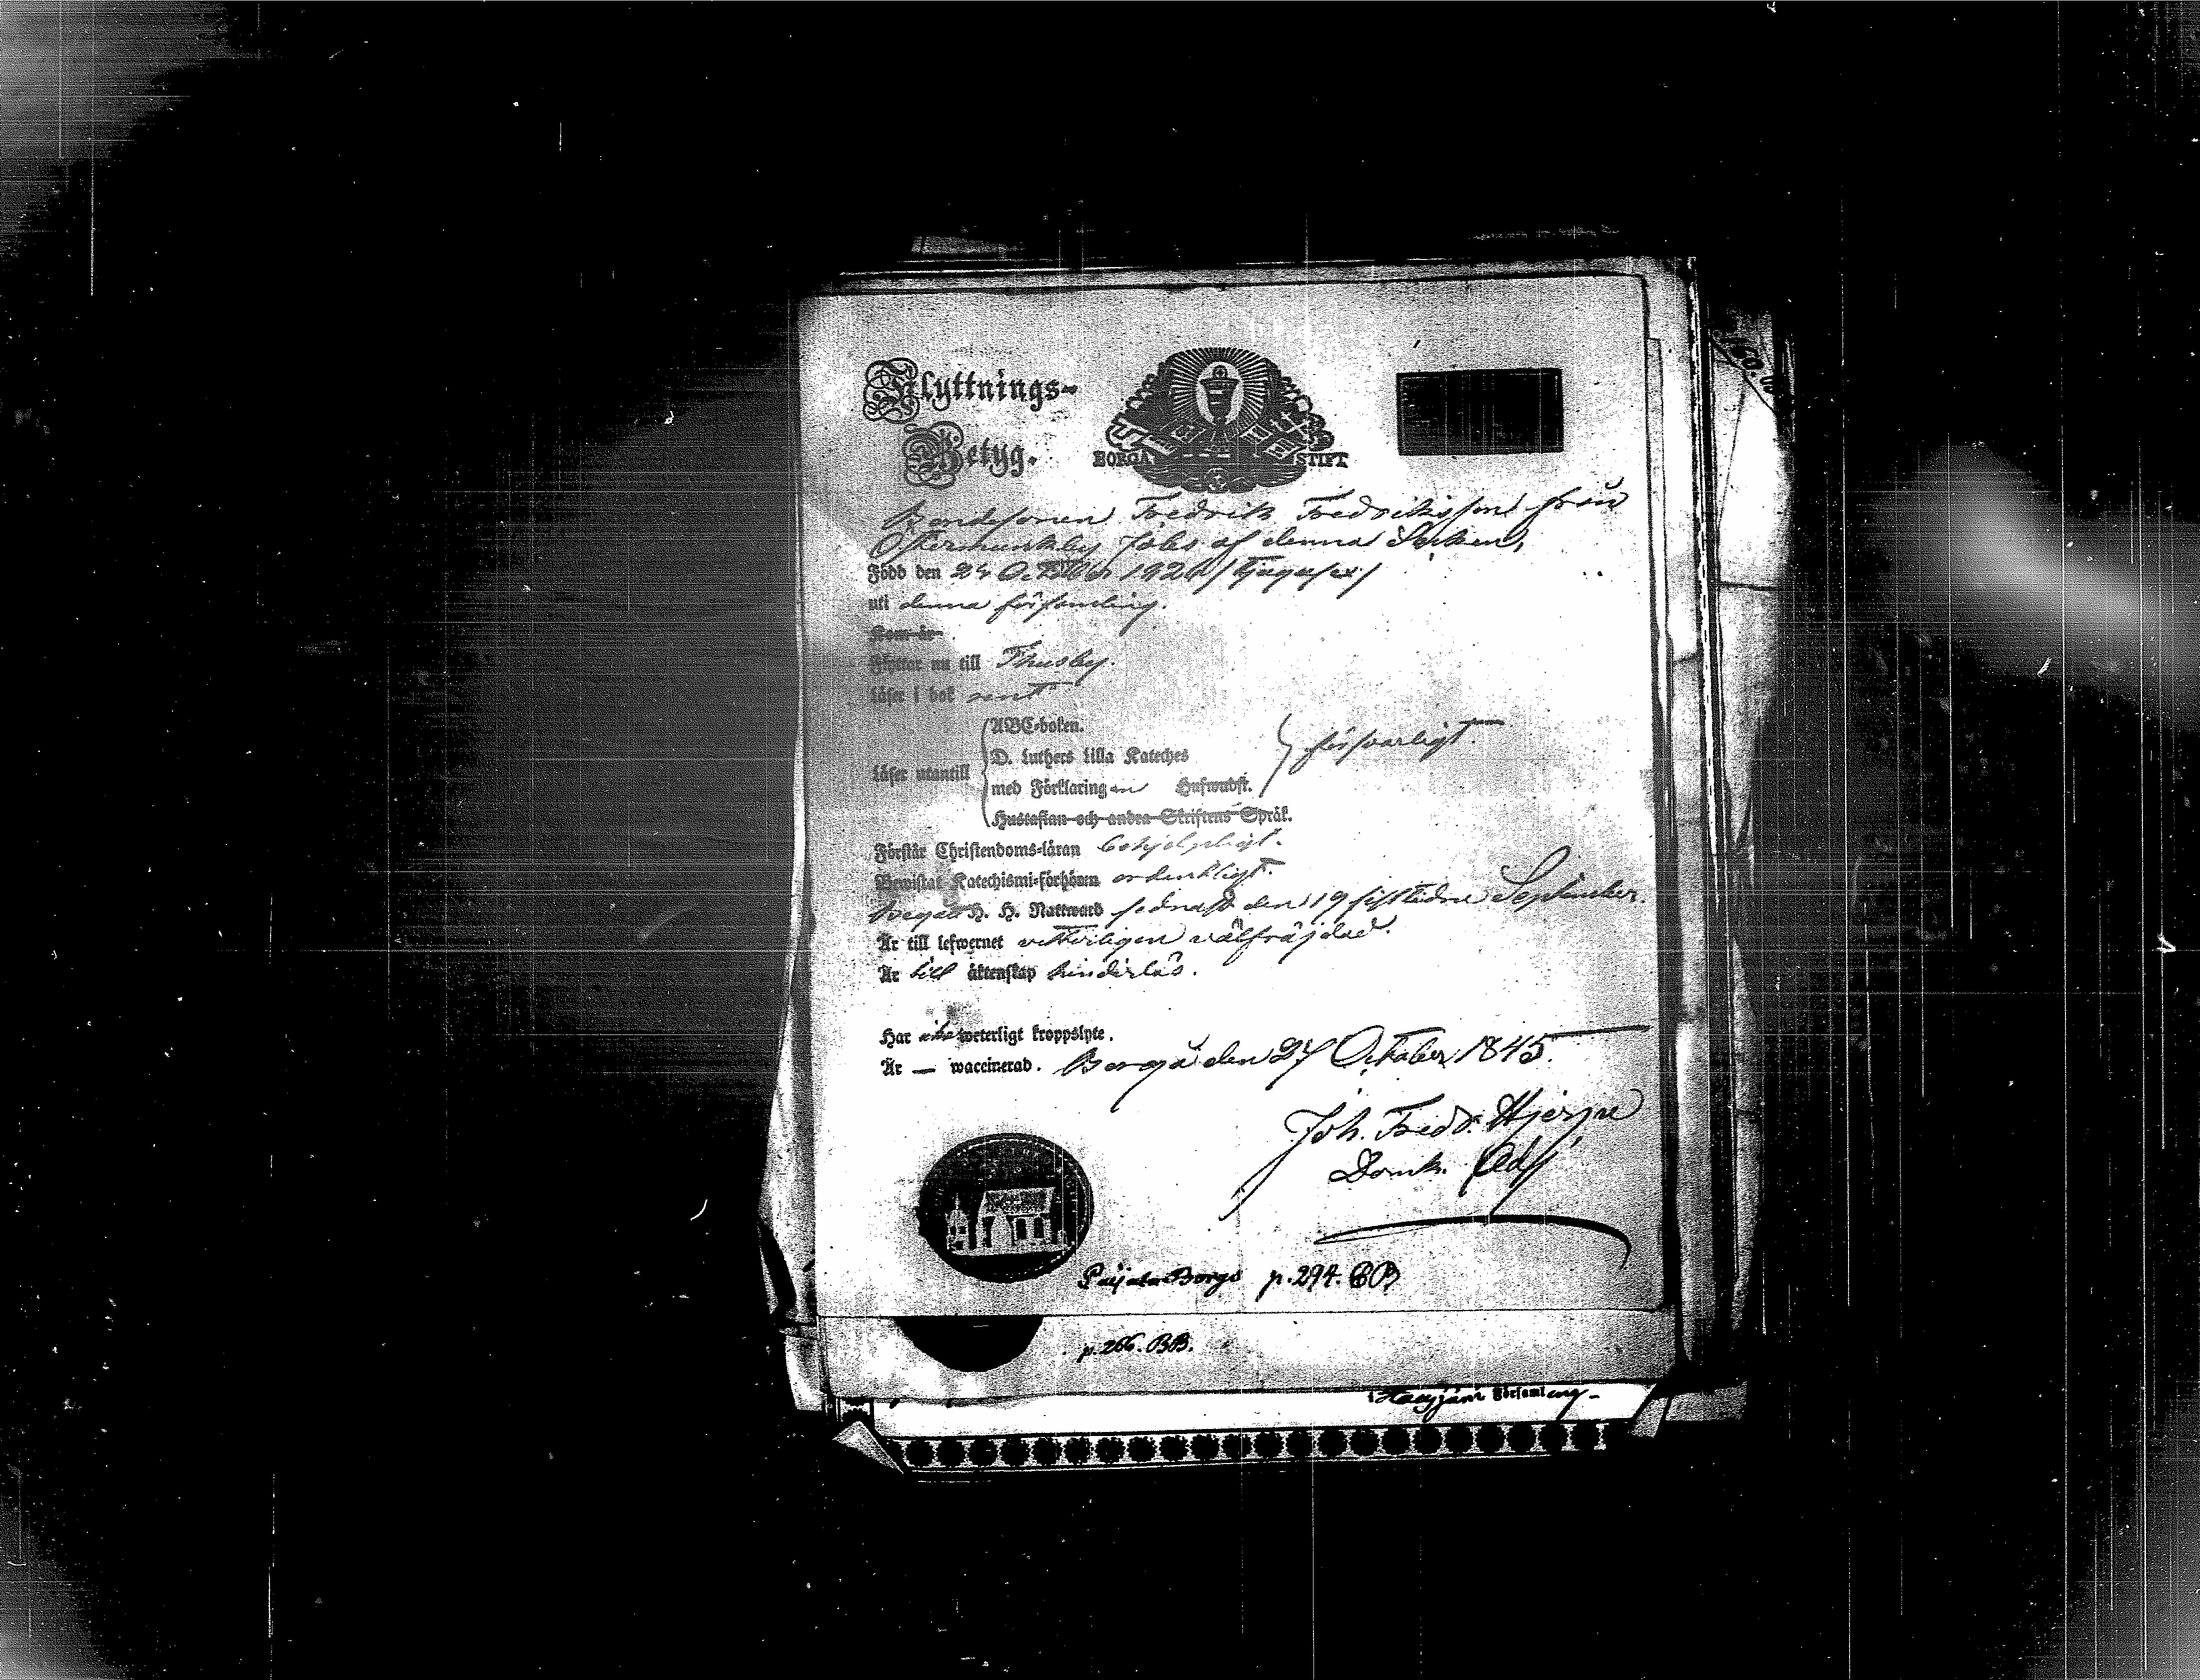 Flyttnings-
Betyg.
BORGÅ STIFT
Bondesonen Fredrik Fredriksson från
Ostermunkby Jobs af denna Socken,
Född den 24 October 1826 /tjugusex/
uti denna församling.
Kom år
Flyttar nu till Thusby.
Läser i bok rent
Läser utantill
ABC-boken.
D. Luthers Lilla Kateches
med Förklaringen Hufwudst.
försvarligt.
Hustaflan och andra Skriftens Språk.
Förstår Christendoms-läran behjelpligt.
Bewistat Katechismi-förhören ordentligt.
begått H. H. Nattward sednast den 19 sistledne September.
Är till lefwernet vitterligen välfräjdad.
Är till äktenskap hinderlös.
Har icke weterligt kroppslyte.
Är — waccinerad. Borgå den 27 October 1845.
Joh. Fredr. Hjerpe
Domk. Adj.
Borgo p. 294. BB
p. 266. BB.
Församling